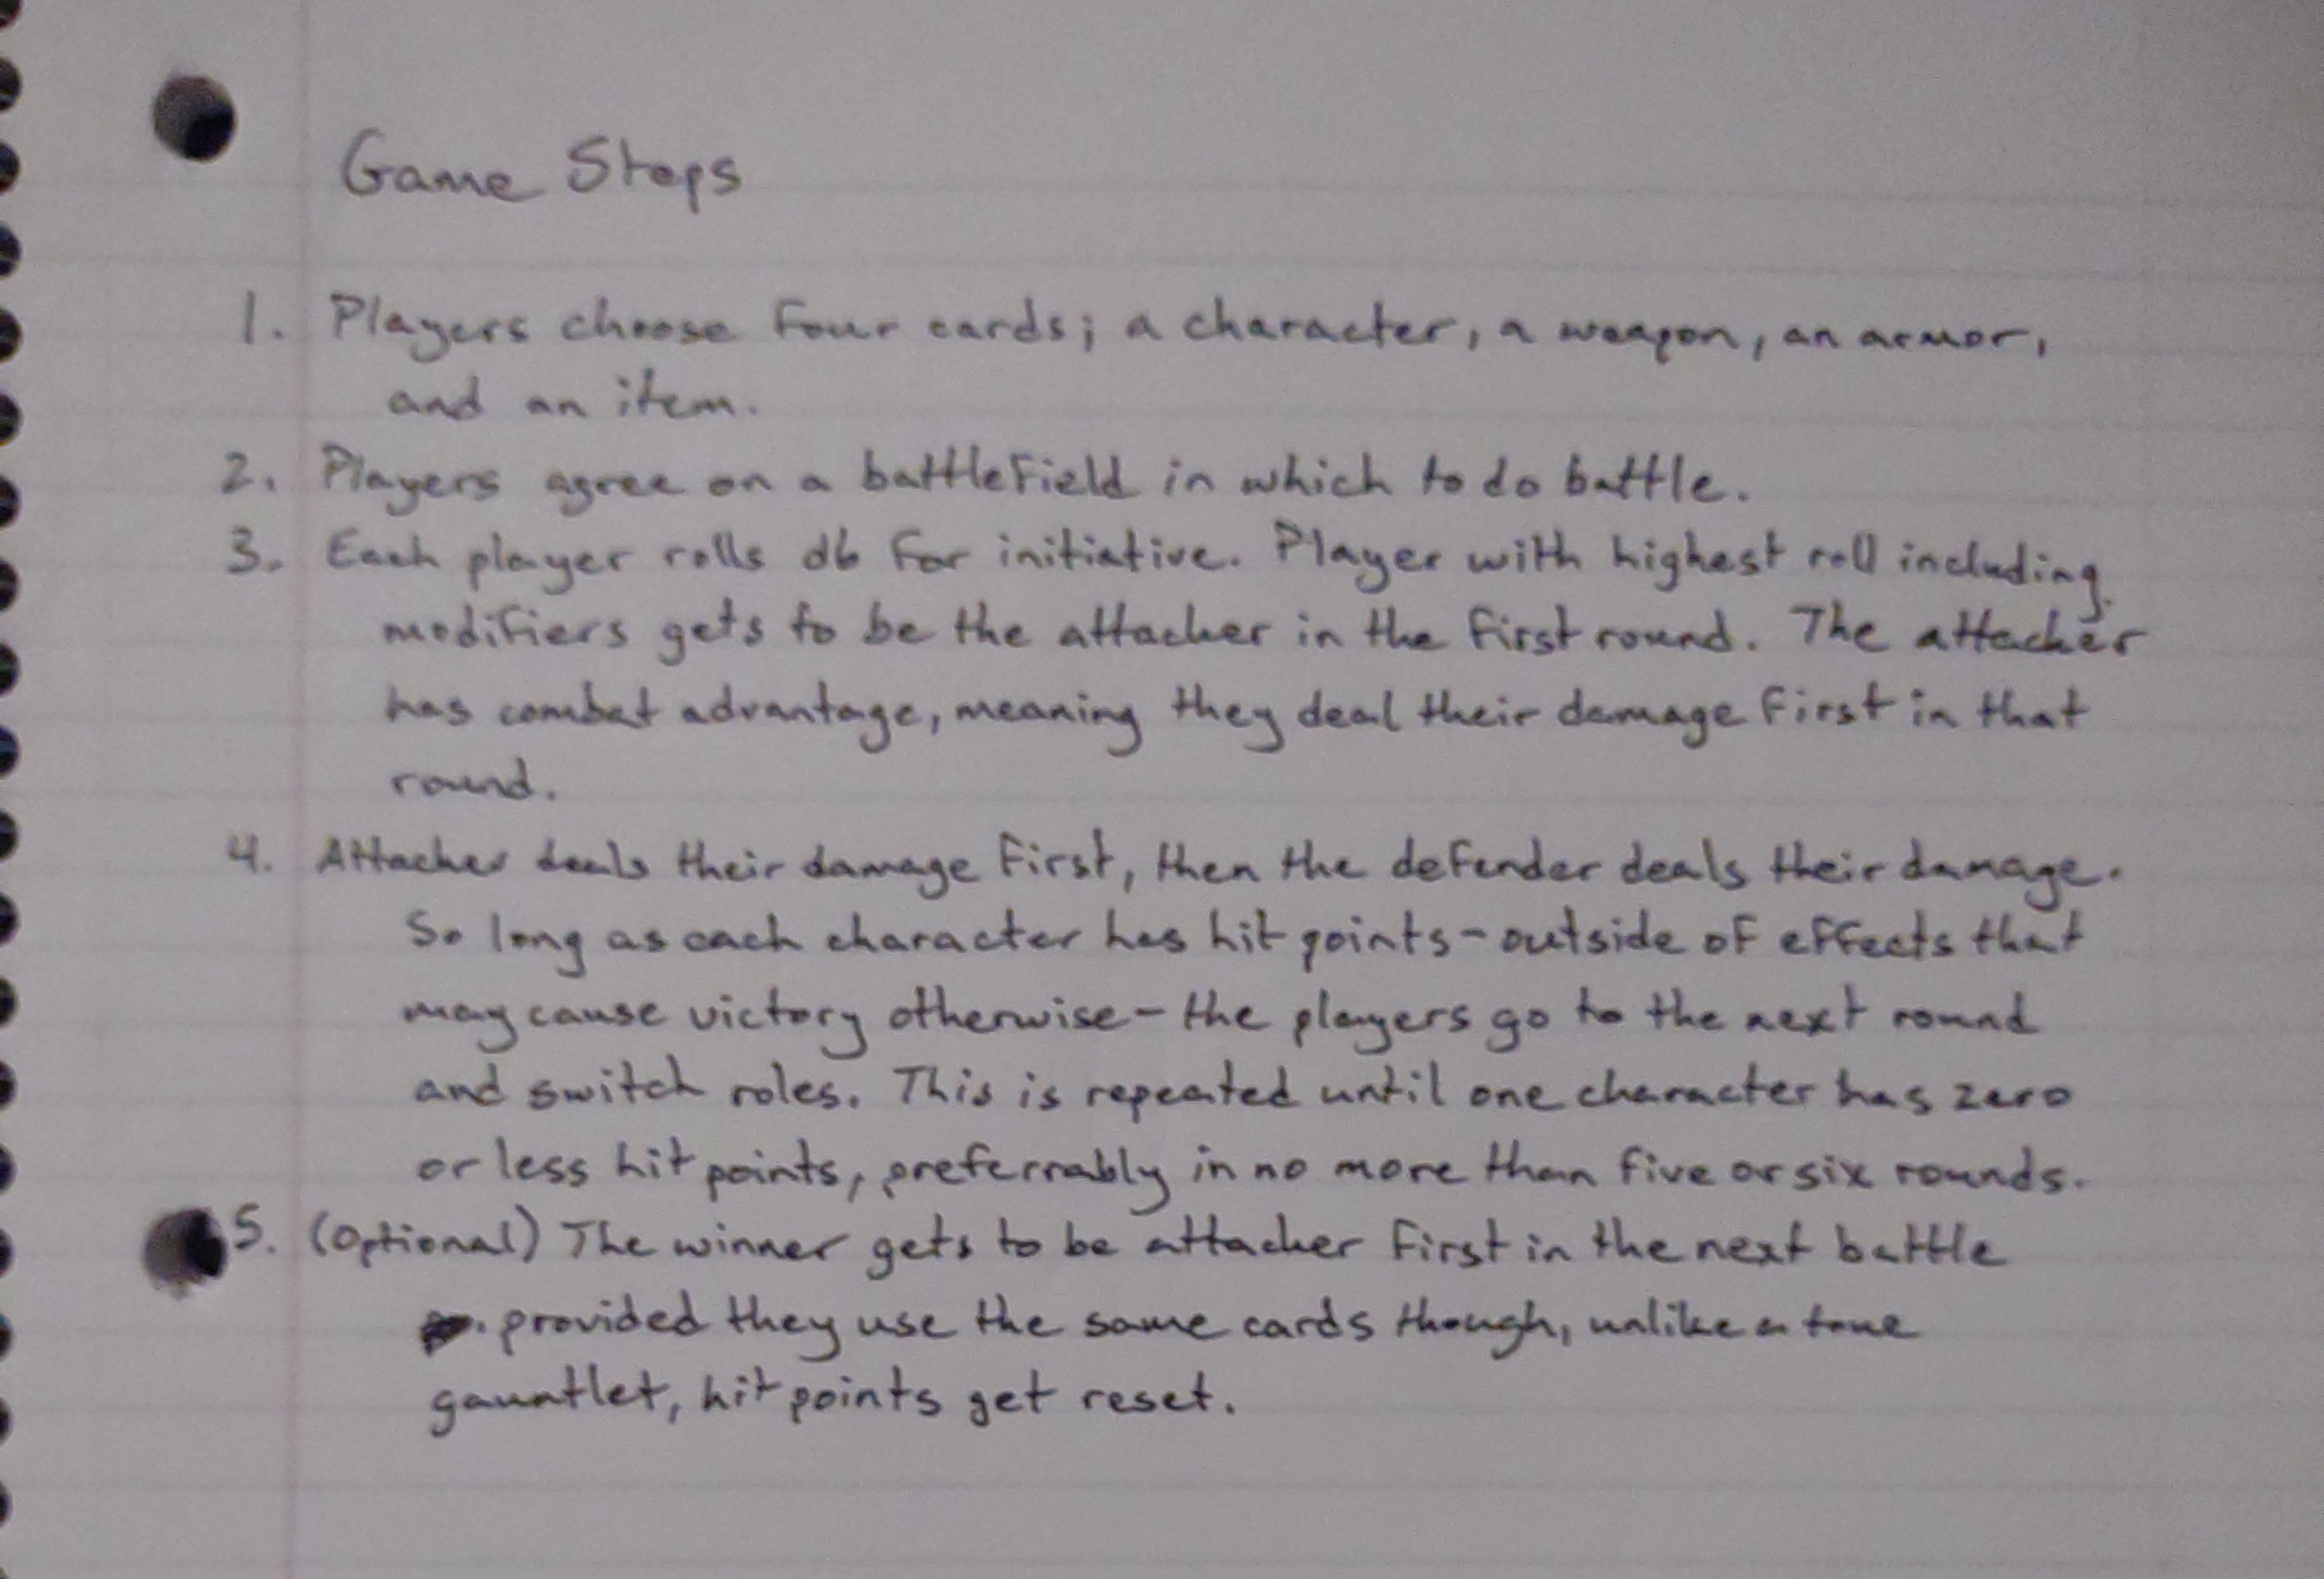 Game Steps
1. Players choose four cards; a character, a weapon, an armor,
and an item.
2. Players agree on a battlefield in which to do battle.
3. Each player rolls d6 for initiative. Player with highest roll including
modifiers gets to be the attacker in the first round. The attacker
has combat advantage, meaning they deal their damage first in that
round.
4. Attacker deals their damage first, then the defender deals their damage.
So long as each character has hit points - outside of effects that
may cause victory otherwise - the players go to the next round
and switch roles. This is repeated until one character has zero
or less hit points, preferrably in no more than five or six rounds.
5. (Optional) The winner gets to be attacker first in the next battle
provided they use the same cards though, unlike a true
gauntlet, hit points get reset.